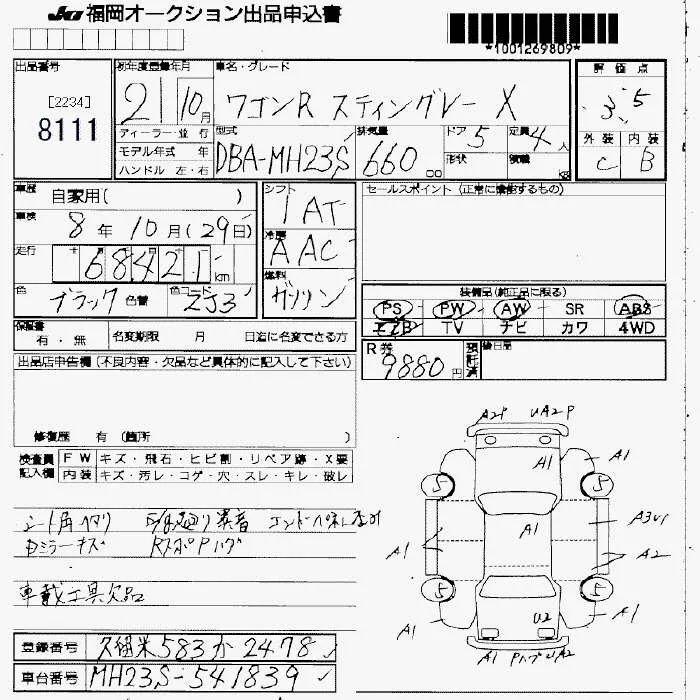 JU 福岡オークション出品申込書
*1001269809*
出品番号
[2234]
8111
初年度登録年月
21 10 月
車名・グレード
ワゴンR スティングレー X
評価点
3.5
外装 内装
C B
ディーラー・並行
モデル年式 年
ハンドル 左・右
型式
DBA-MH23S
排気量
660 cc
ドア 5
形状
定員 4 人
積載 kg
車歴
自家用( )
車検
8 年 10 月(29日)
走行
68421 km
色
ブラック 色替
色コード
ZJ3
シフト
IAT
冷房
AAC
燃料
ガソリン
セールスポイント(正常に機能するもの)
装備品(純正品に限る)
PS PW AW SR ABS
エアB TV ナビ カワ 4WD
保証書
有・無
名変期限 月 日迄に名変できる方
R券
9880円
預託済
後日品
出品店申告欄(不良内容・欠品など具体的に記入して下さい)
修復歴 有(箇所 )
検査員
記入欄
FW キズ・飛石・ヒビ割・リペア跡・X要
内装 キズ・汚レ・コゲ・穴・スレ・キレ・破レ
シート角ヘタリ
ミラーキズ
車載工具欠品
登録番号 久留米 583 か 2478
車台番号 MH23S-541839
A2P UA2P
A1 A1
5 5
A1
A1 A3U1
A2
5 5
U2
A1 A1
A1 UA2